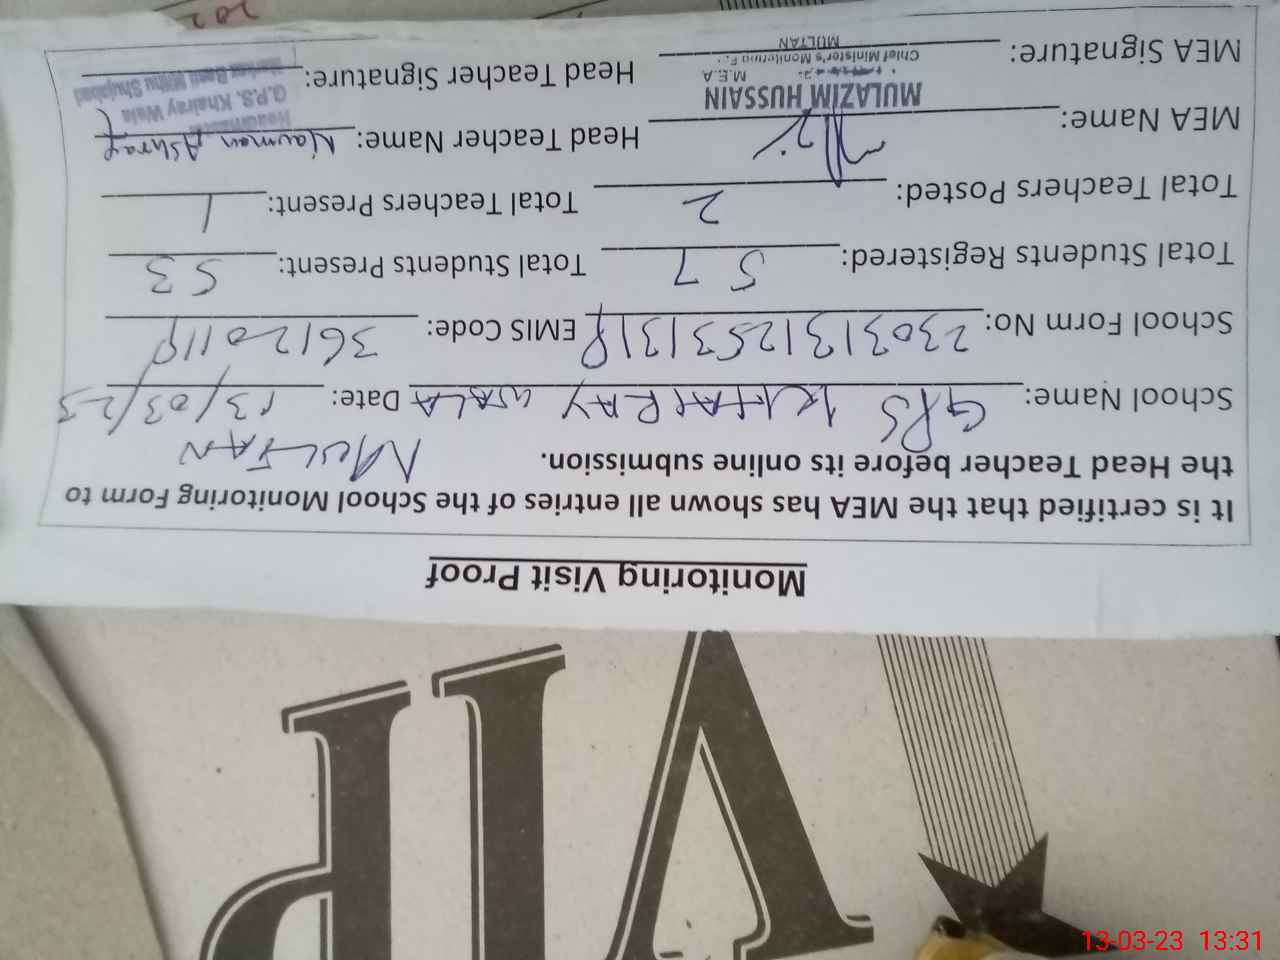 Monitoring Visit Proof
It is certified that the MEA has shown all entries of the School Monitoring Form to
the Head Teacher before its online submission. MULTAN
School Name: GPS KHAIRAY WALA Date: 13/03/23
School Form No: EMIS Code:
Total Students Registered: 57 Total Students Present: 53
Total Teachers Posted: 2 Total Teachers Present: 1
MEA Name: Head Teacher Name: Nauman Ashraf
MULAZIM HUSSAIN
M.E.A
Chief Minister's Monitoring F
MULTAN
MEA Signature: Head Teacher Signature:
Headmaster
G.P.S. Khairay Wala
Shujabad
VIP
202
13-03-23 13:31